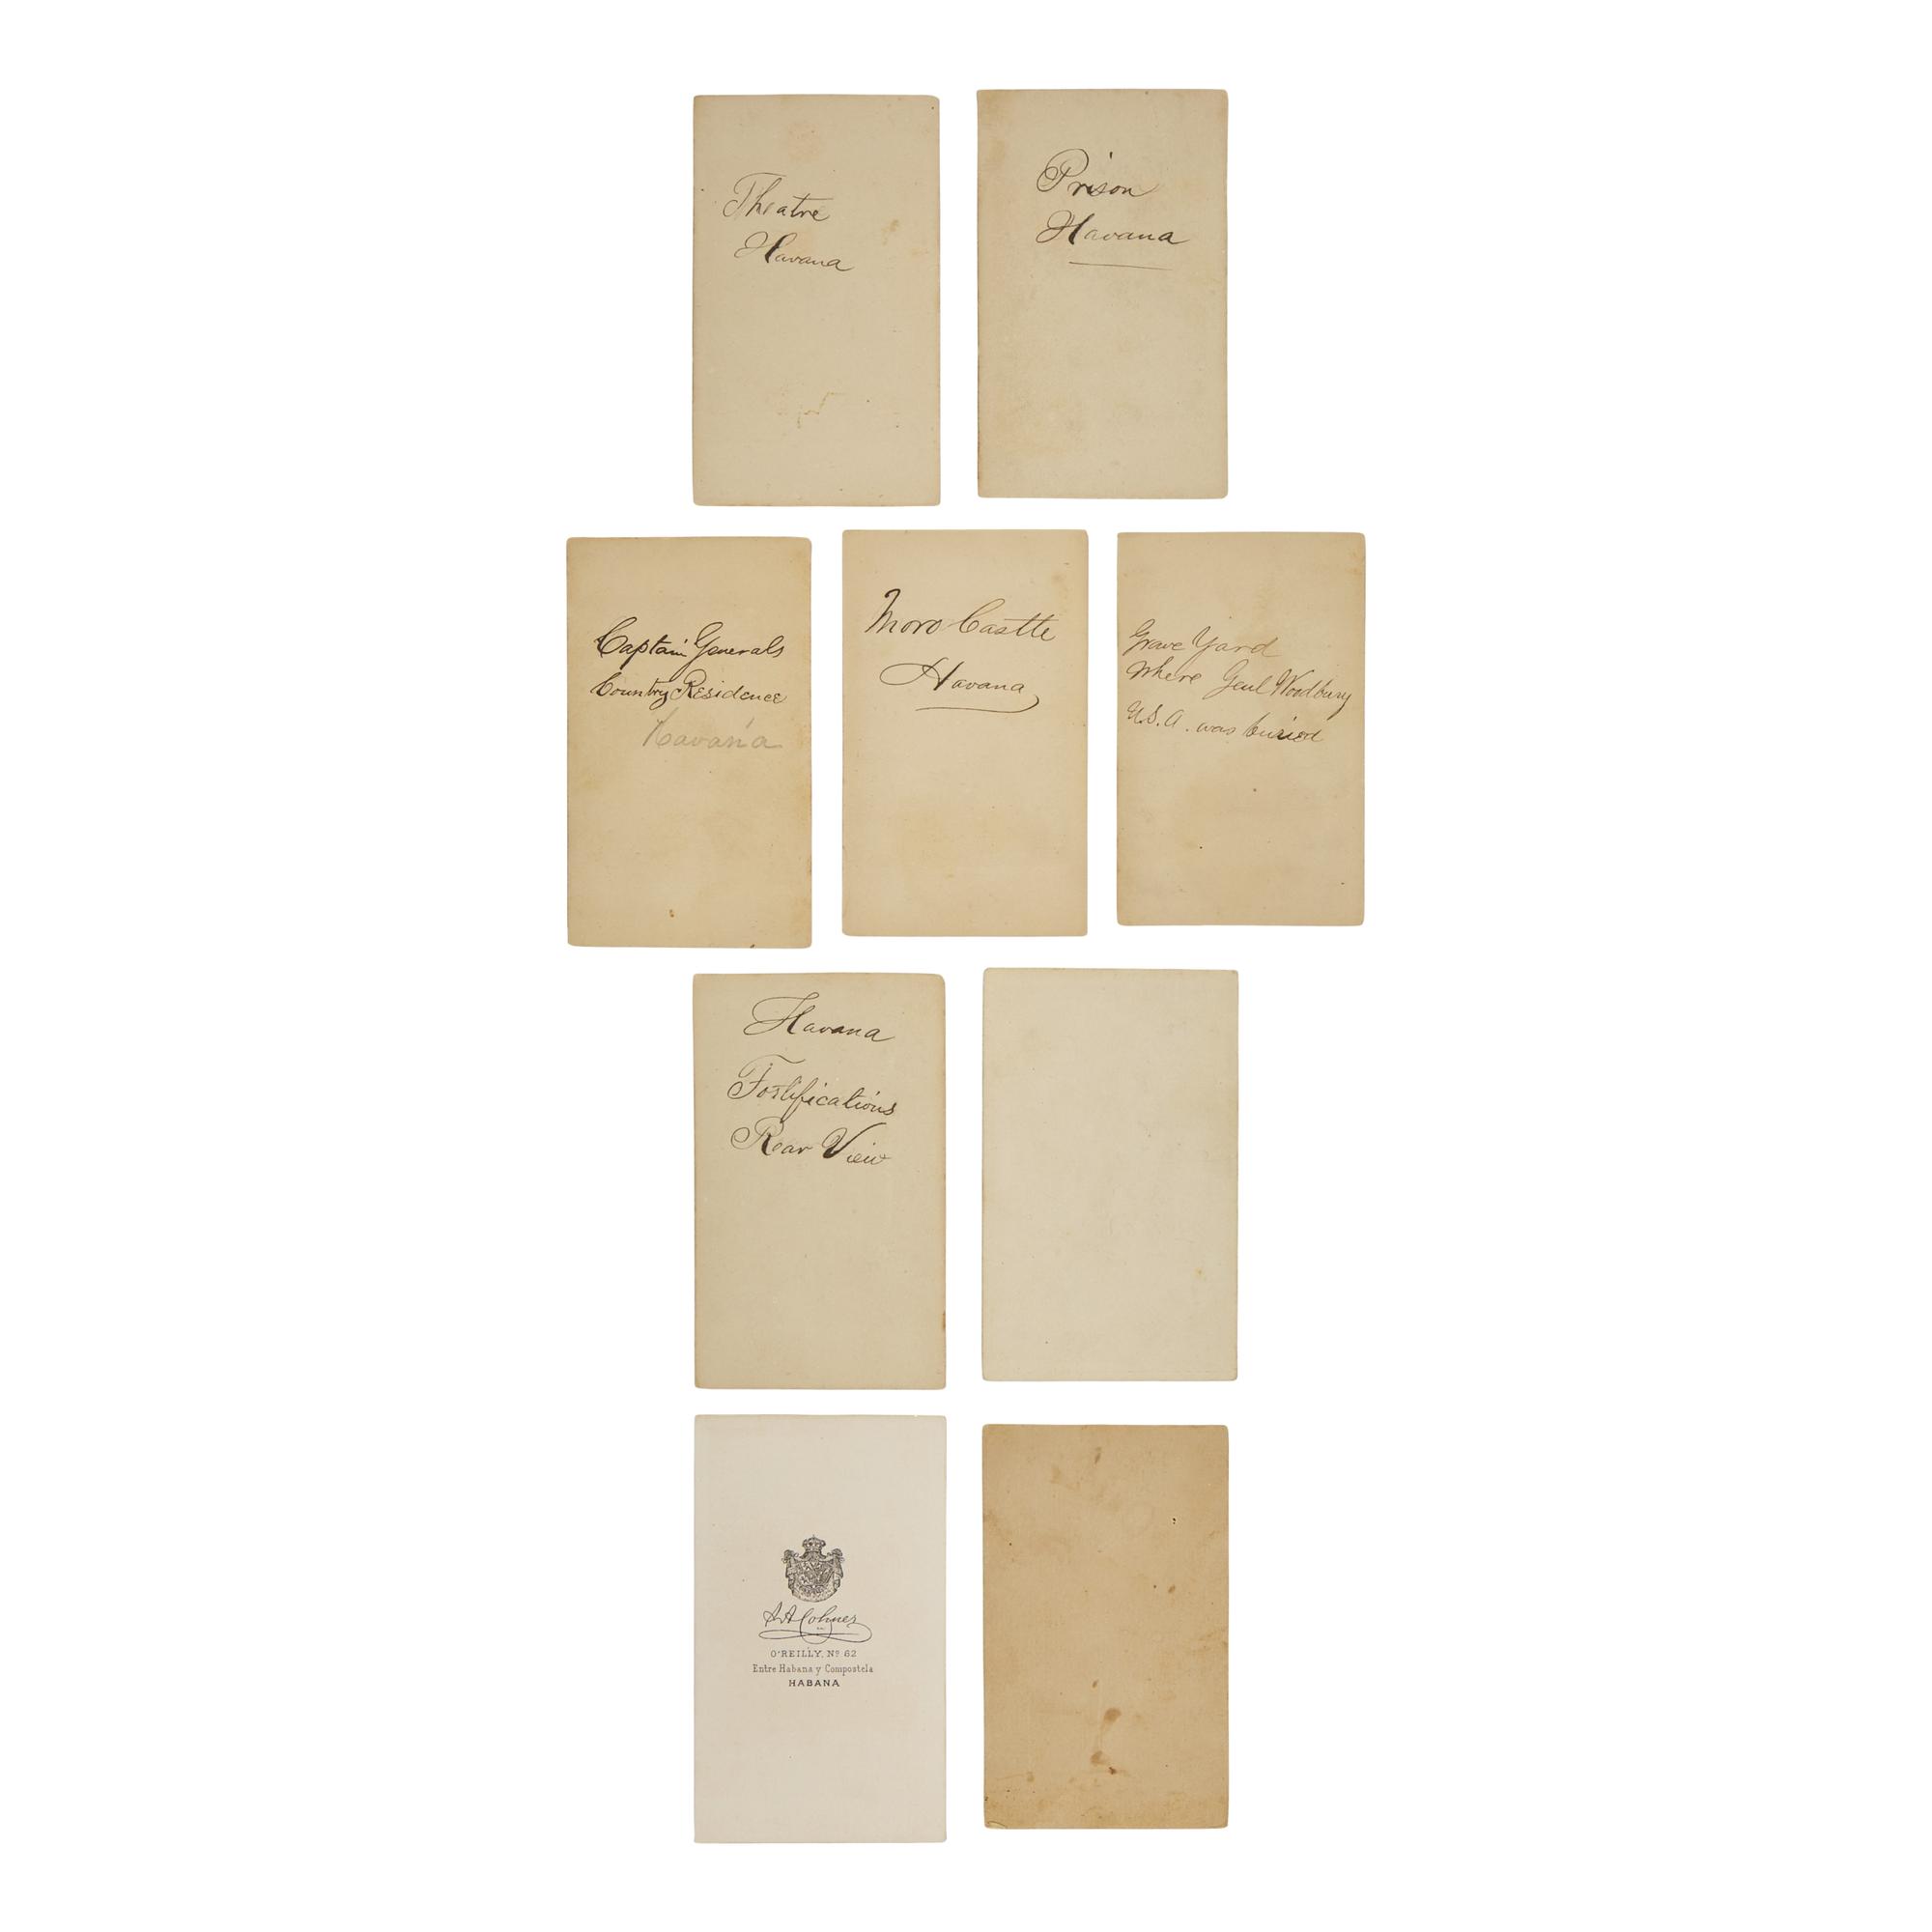 Theatre
Havana
Prison
Havana
Captain Generals
Country Residence
Havana
Moro Castle
Havana
Grave Yard
where Genl Woodbury
U.S.A. was buried
Havana
Fortifications
Rear View
O'REILLY, Nº 62
Entre Habana y Compostela
HABANA